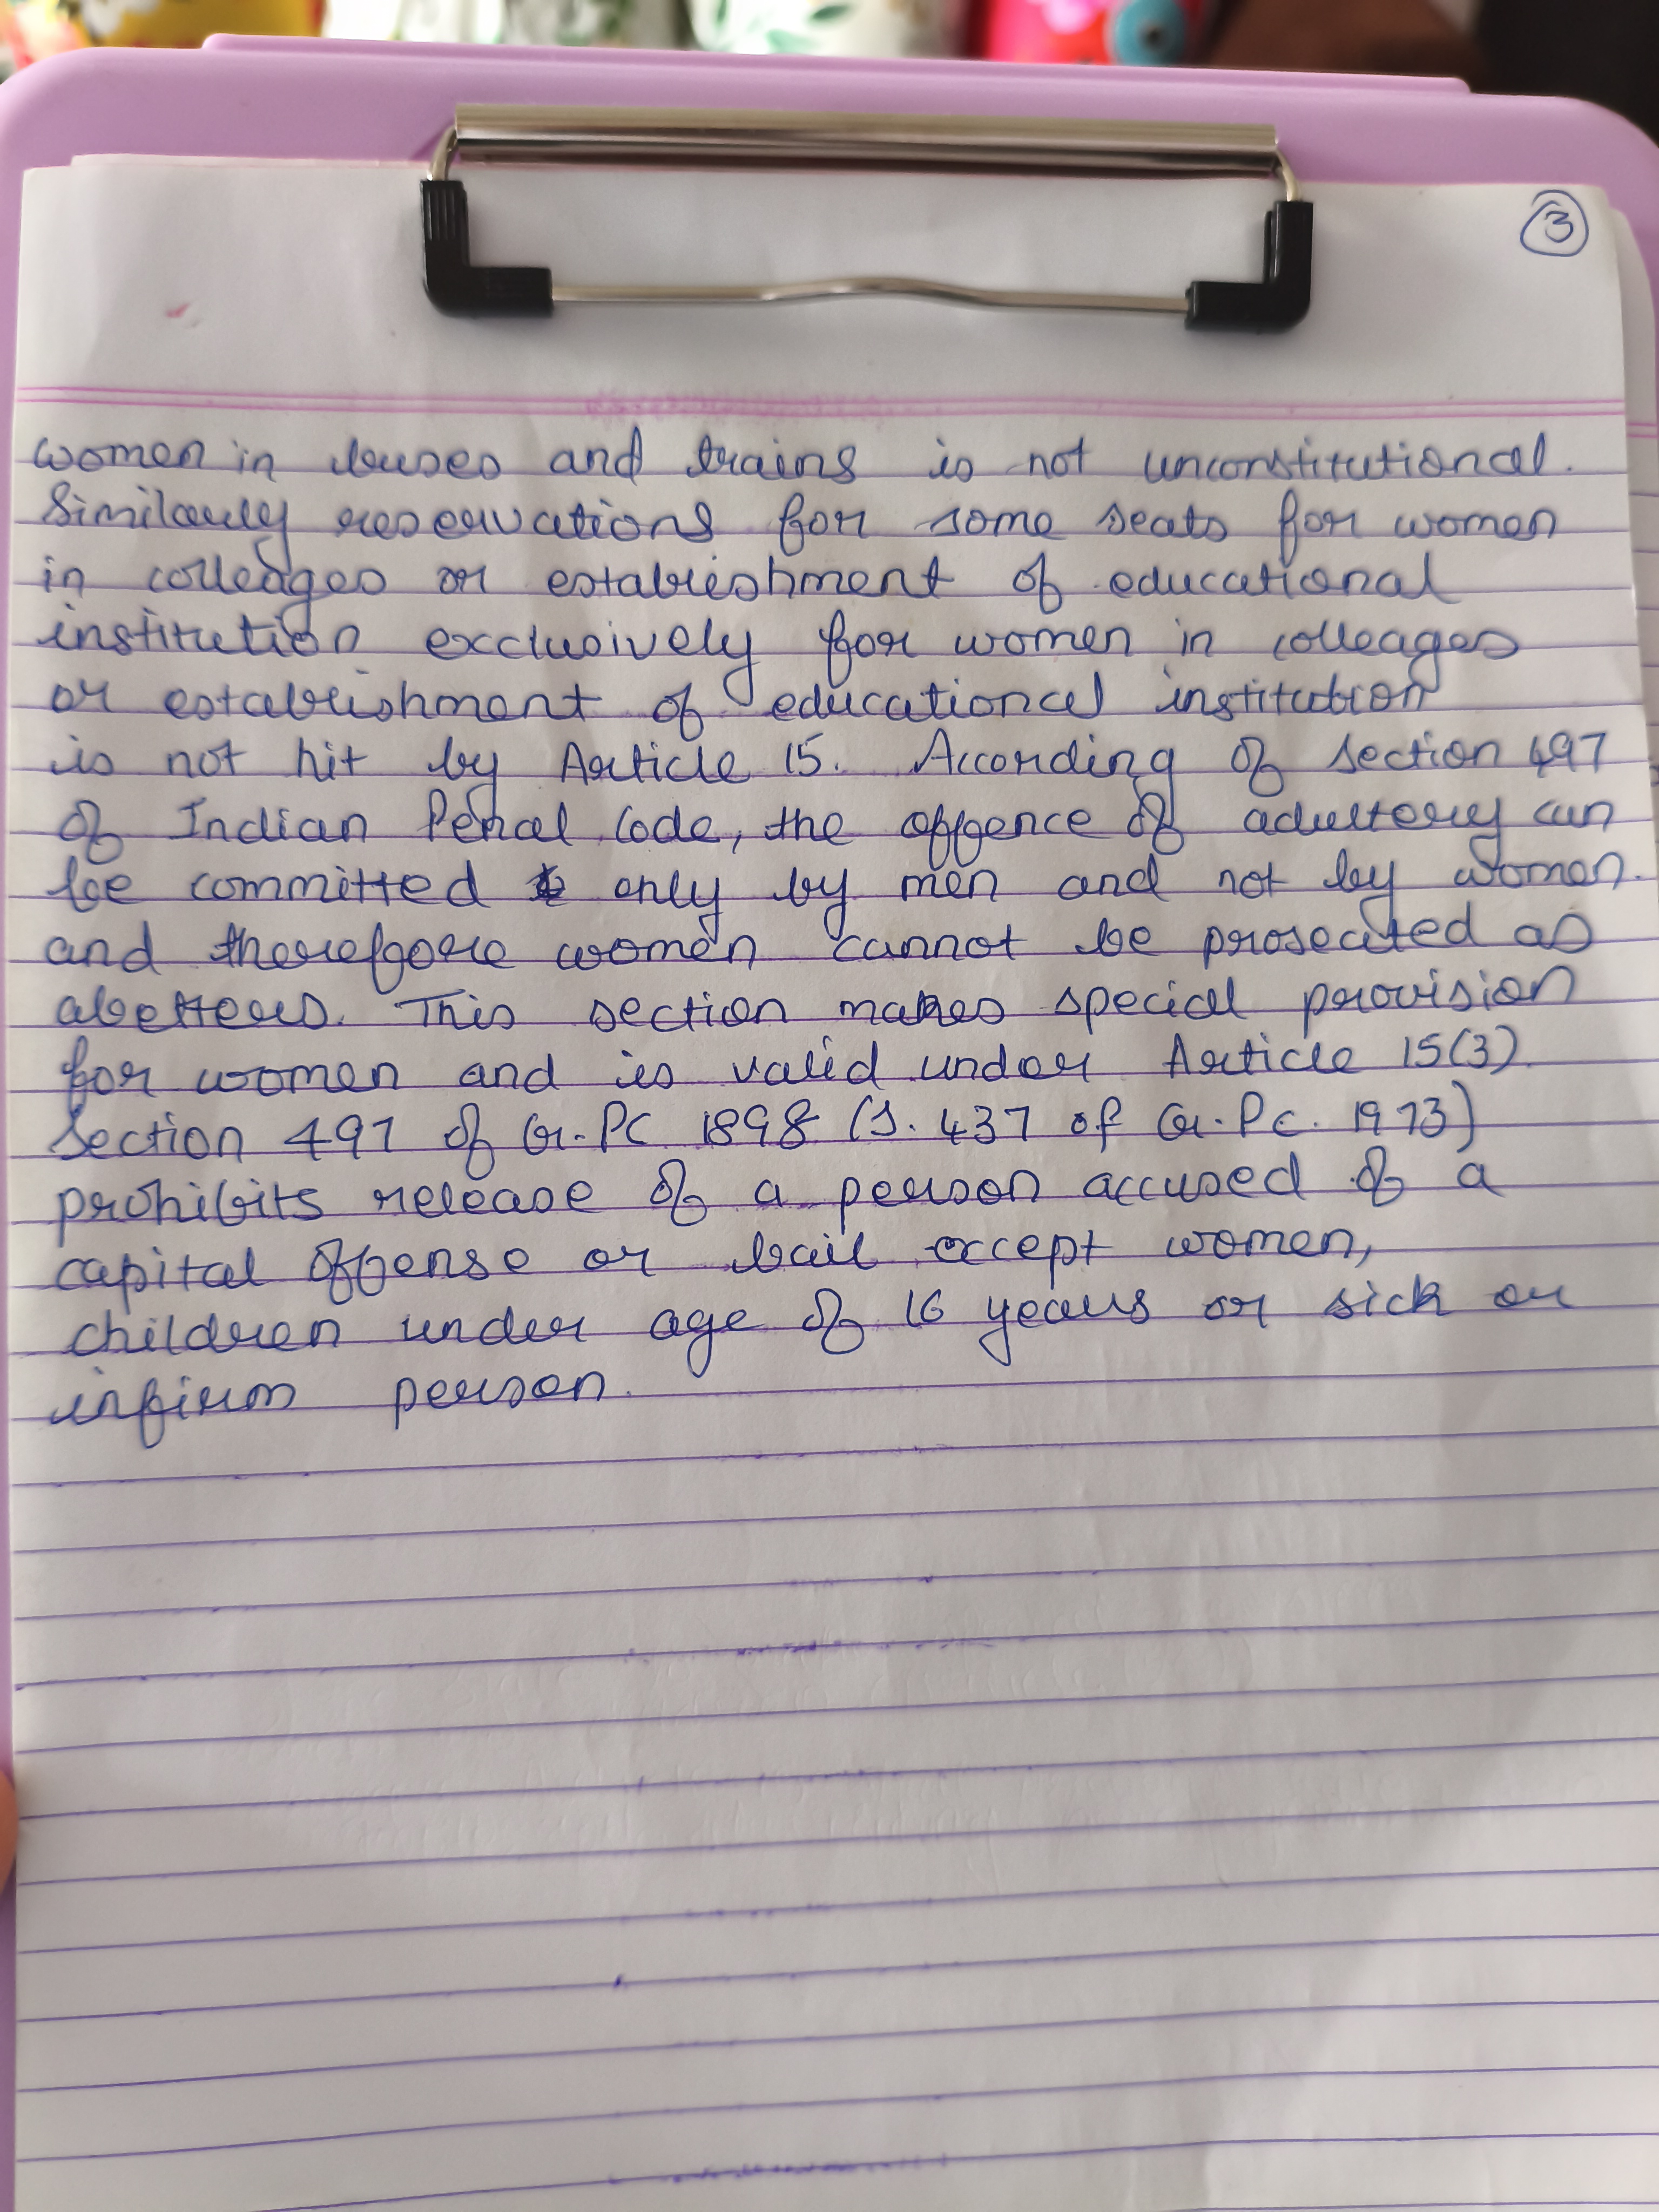 3
women in buses and trains is not unconstitutional.
Similarly reservations for some seats for women
in colleages or establishment of educational
institution exclusively for women in colleages
or establishment of educational institution
is not hit by Article 15. According of section 497
of Indian Penal Code, the offence of adultery can
be committed only by men and not by women.
and therefore women cannot be prosecuted as
abetters. This section makes special provision
for women and is valid under Article 15(3).
Section 497 of Cr.PC 1898 (S. 437 of Cr.Pc. 1973)
prohibits release of a person accused of a
capital offense or bail except women,
children under age of 16 years or sick or
infirm person.